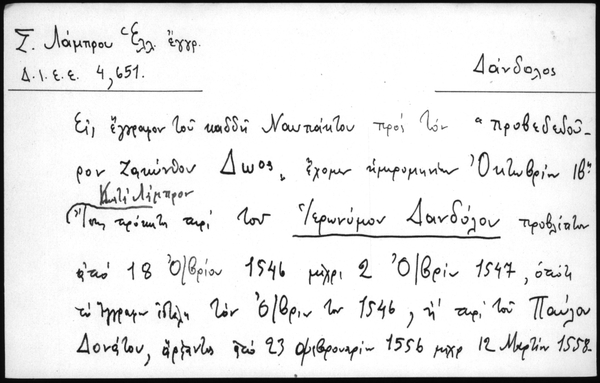 Σ. Λάμπρου Ἑλλ. ἔγγρ.
Δ.Ι.Ε.Ε. 4,651.
Δάνδολος
Εἰς ἔγγραφον τοῦ καδδῆ Ναυπάκτου πρὸς τὸν "προβεδεδοῦ-
ρον Ζακύνθου Δωσ., ἔχομεν ἡμερομηνίαν Ὀκτωβρίου 18ῃ
Κατὰ Λάμπρον
πρόκειται περὶ τοῦ Ἱερωνύμου Δανδόλου προβλέπτου
ἀπὸ 18 Ὀ/βρίου 1546 μέχρι 2 Ὀ/βρίου 1547, ὁπότε
τὸ ἔγγραφον ἐστάλη τὸν Ὀ/βριον του 1546, ἢ περὶ τοῦ Παύλου
Δονάτου, ἄρξαντος ἀπὸ 23 Φεβρουαρίου 1556 μέχρ 12 Μαρτίου 1558.